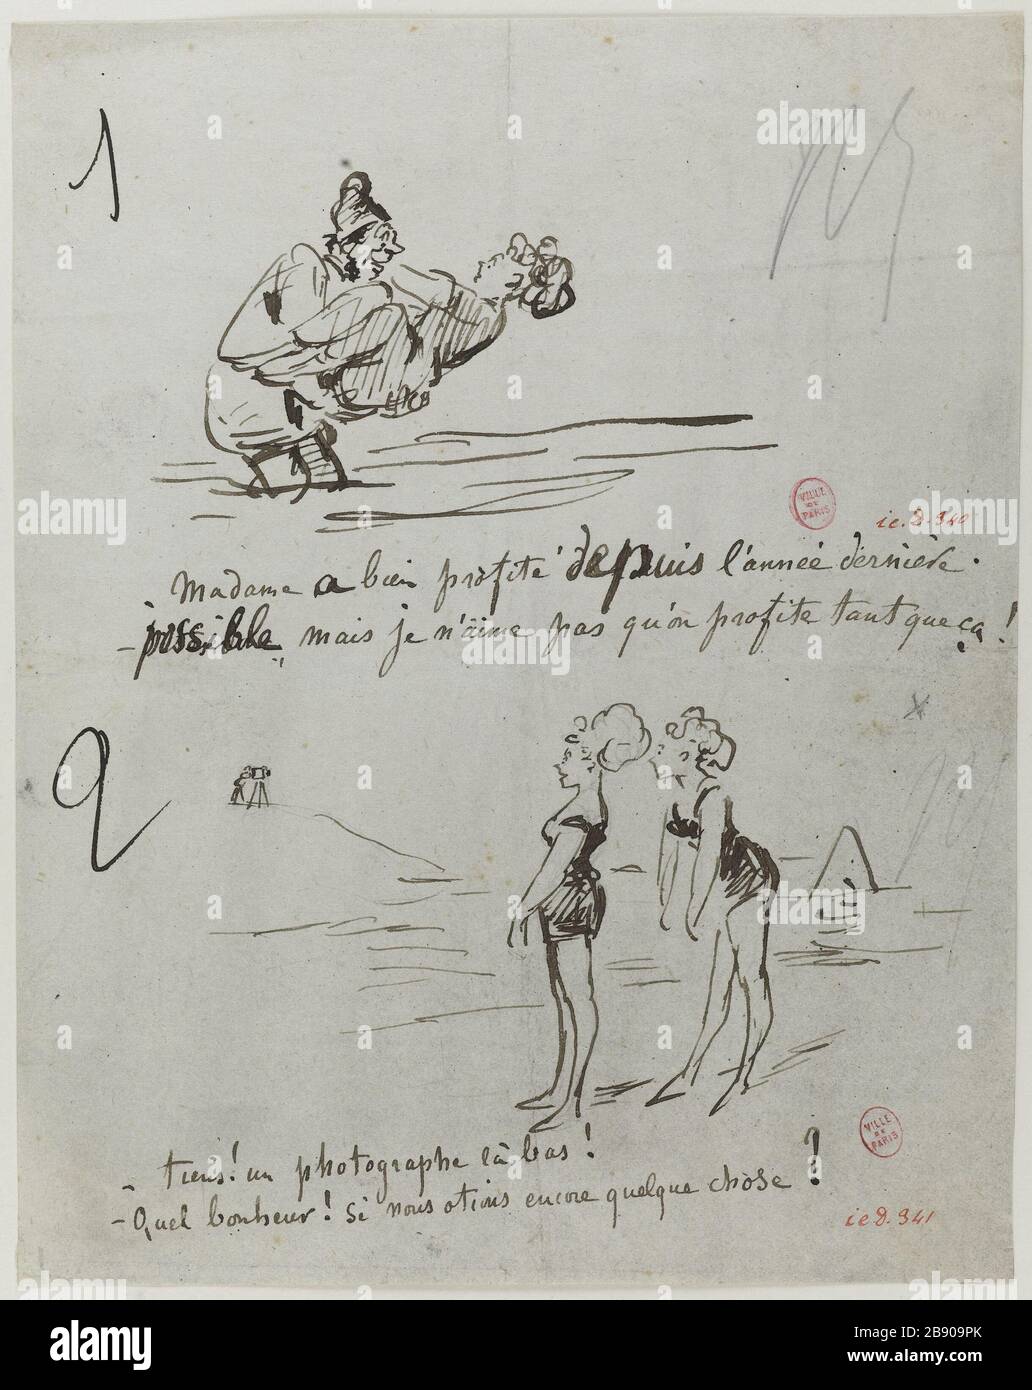 1
VILLE DE PARIS
ie.D.340
- Madame a bien profité depuis l'année dernière.
- possible, mais je n'aime pas qu'on profite tant que ça !
x
2
VILLE DE PARIS
- tiens ! un photographe là bas !
- Quel bonheur ! Si nous otions encore quelque chose ?
ieD.341
alamy
Image ID: 2B909PK
www.alamy.com